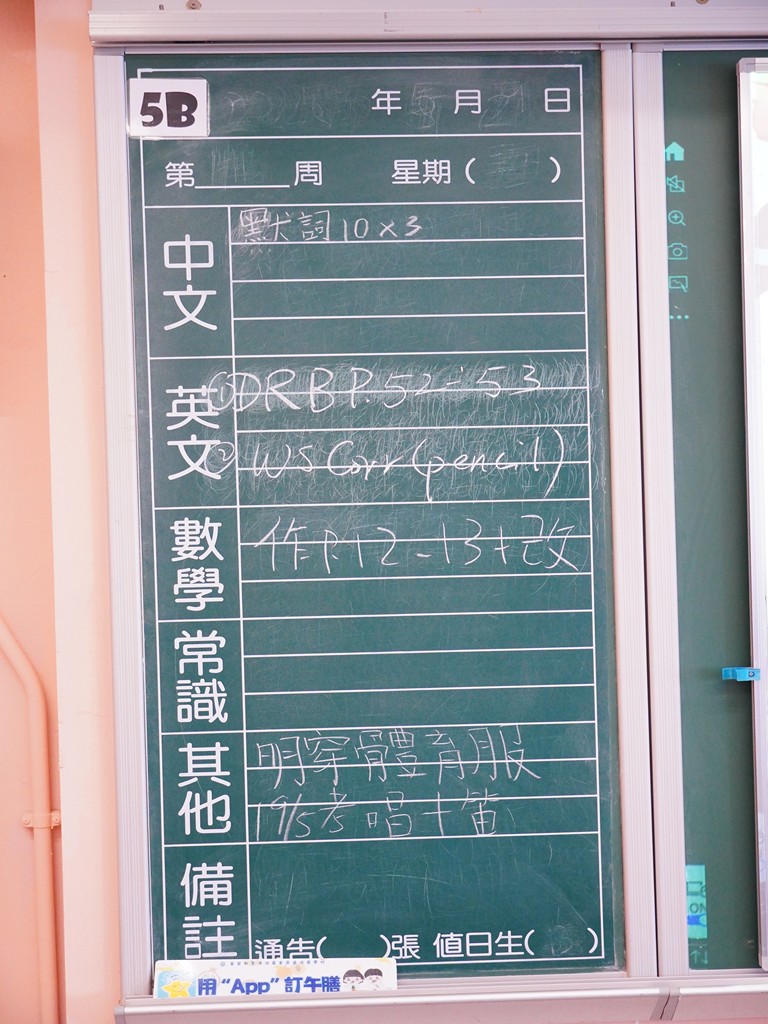 5B
年 月 日
第 周 星期( )
中文
默詞10×3
英文
①DRB P.52-53
② WS Corr(pencil)
數學
作P.12-13+改
常識
其他
明穿體育服
19/5考唱+笛
備註
通告( )張 值日生( )
用“App”訂午膳